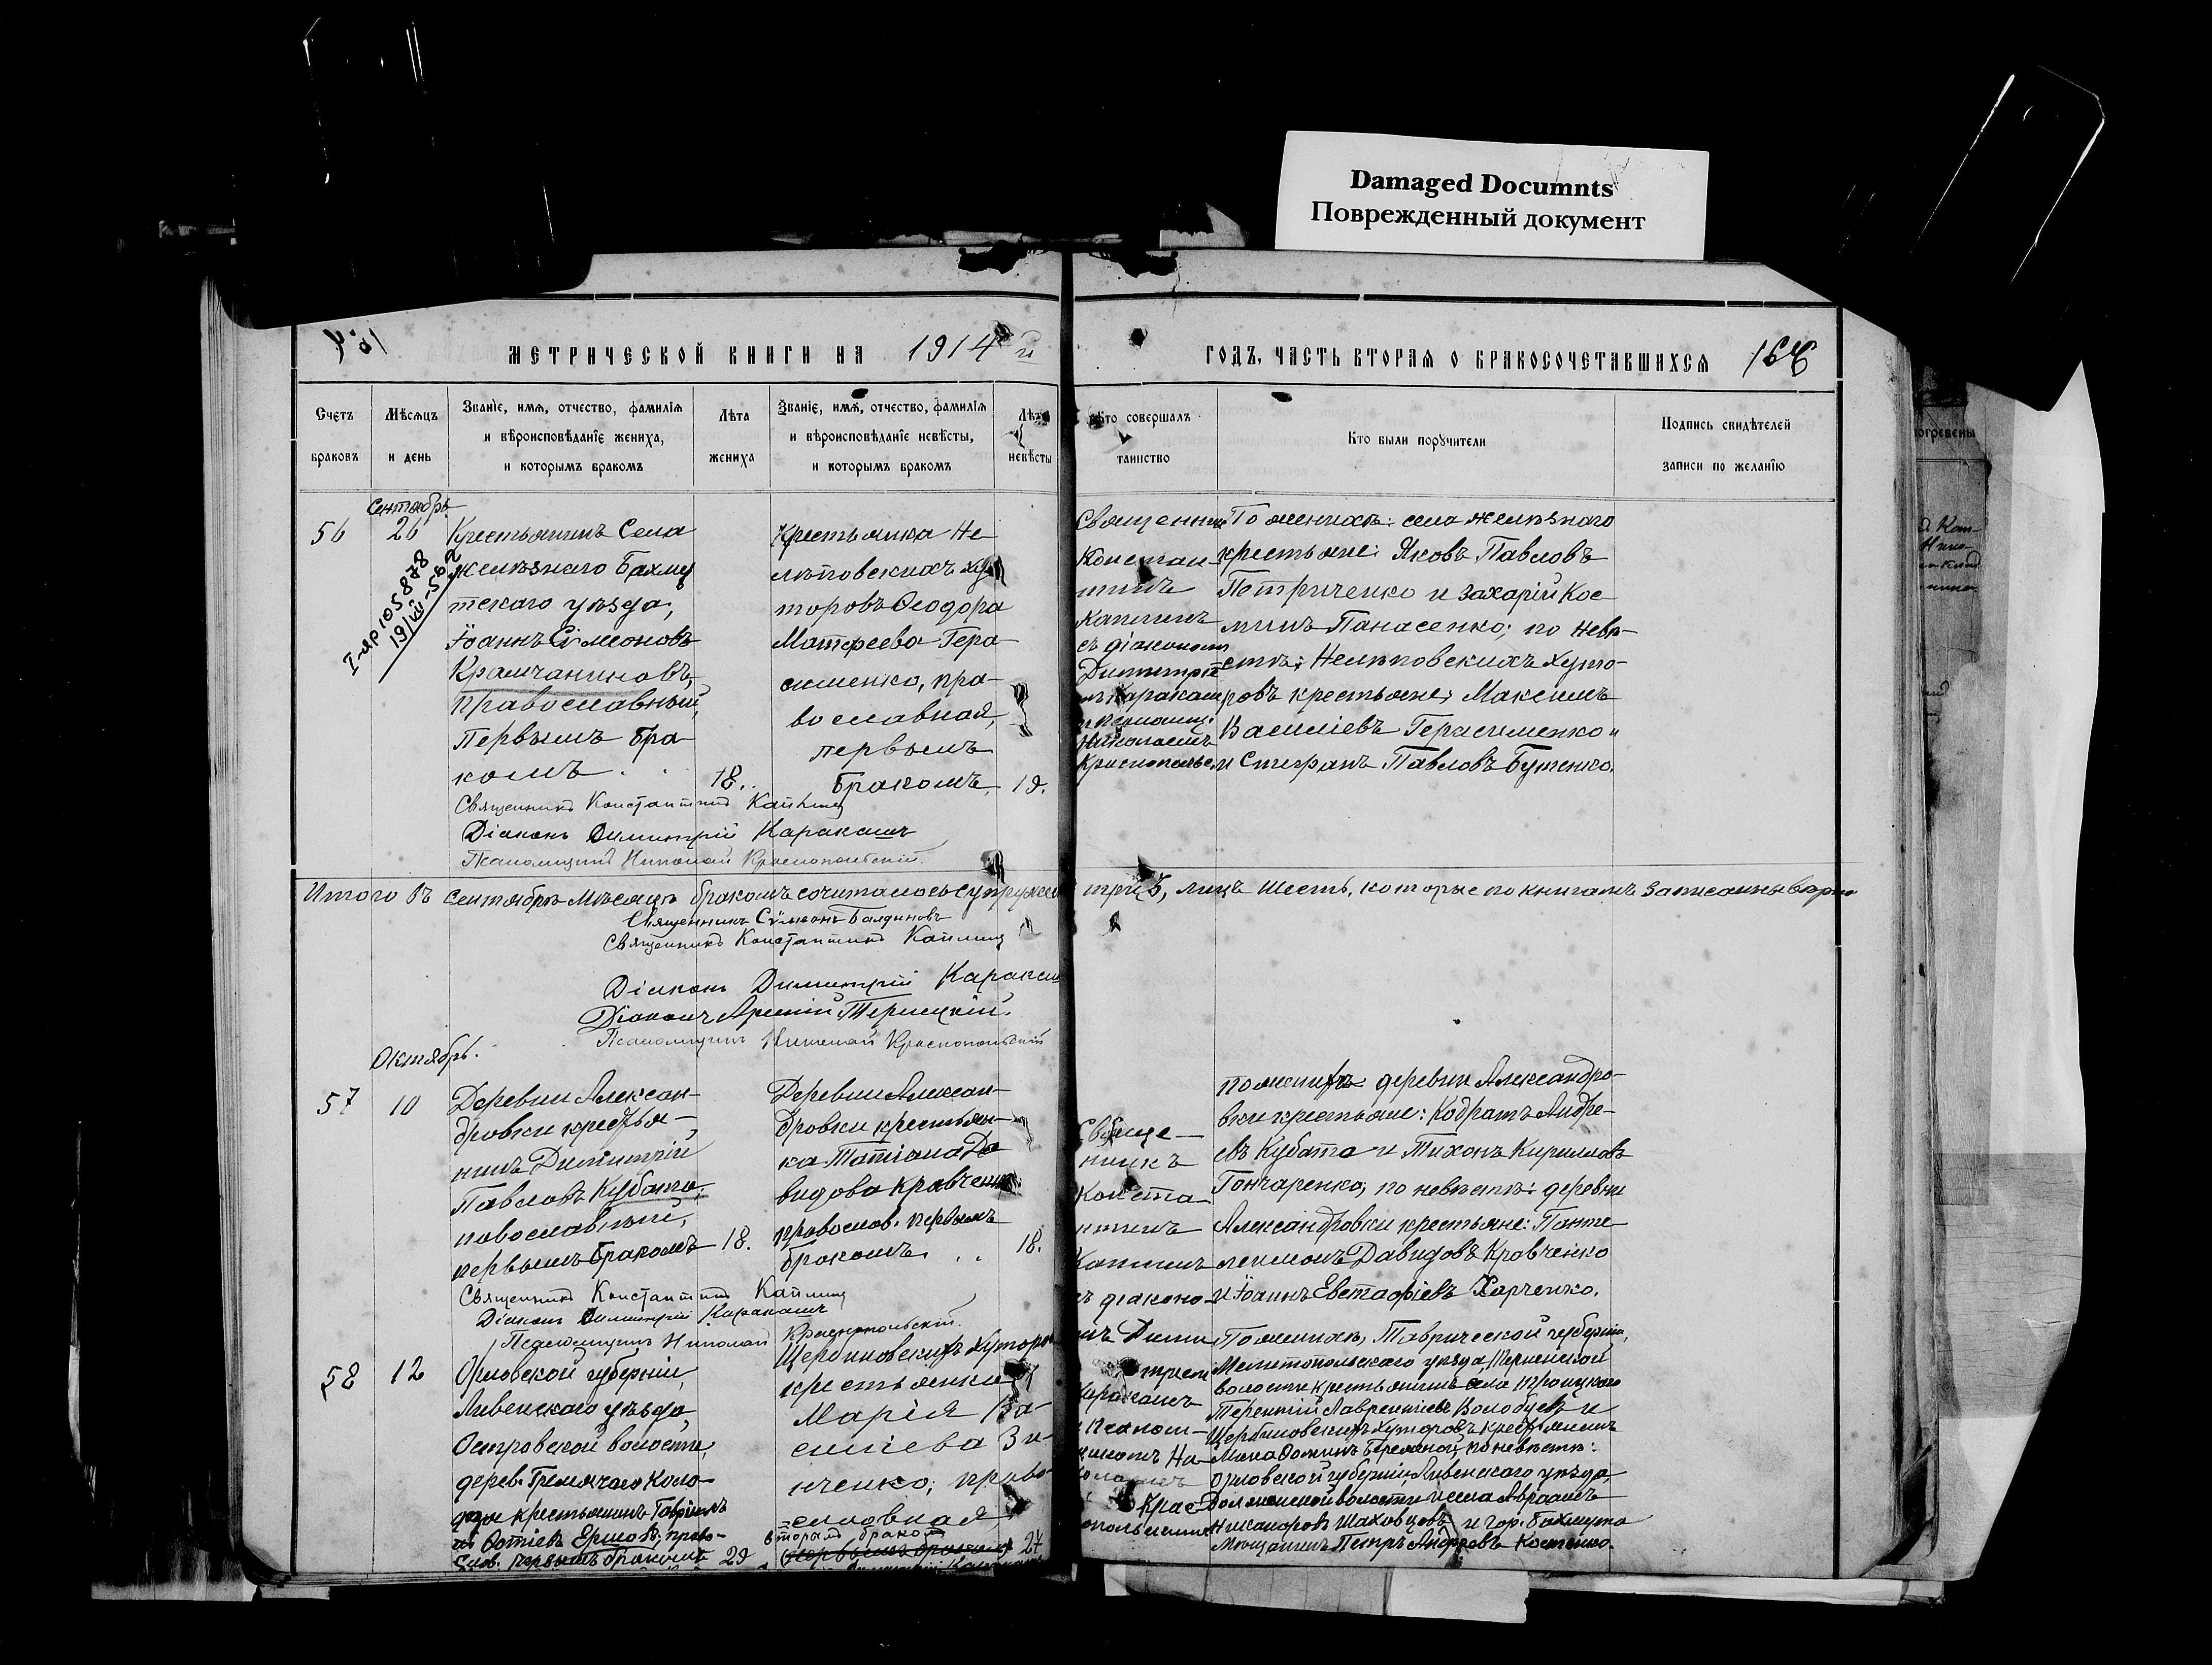 Damaged Documnts
Поврежденный документ
МЕТРИЧЕСКОЙ КНИГИ НА 1914 й
ГОДЪ, ЧАСТЬ ВТОРАЯ О БРАКОСОЧЕТАВШИХСЯ
Счетъ браковъ
Мѣсяцъ и день
Званіе, имя, отчество, фамилія
и вѣроисповѣданіе жениха,
и которымъ бракомъ
Лѣта
жениха
Званіе, имя, отчество, фамилія
и вѣроисповѣданіе невѣсты,
и которымъ бракомъ
Лѣта
невѣсты
Кто совершалъ
таинство
Кто были поручители
Подпись свидѣтелей
записи по желанію
Сентябрь
56
26
I-яр 105878
19/VII-582
Крестьянинъ Села
Желѣзнаго Бахму
тскаго уѣзда,
Іоаннъ Сѵмеоновъ
Крамчаниновъ,
православный,
Первымъ бра
комъ
18.
Крестьянка Не
лѣповскихъ ху
торовъ Ѳеодора
Матфеева Гера
сименко, пра
вославная,
первымъ
бракомъ
19.
Священник
Констан
тинъ
Капшинъ
съ діакономъ
Димитрі
Каракаш
Николаемъ
По женихѣ: села Желѣзнаго
крестьяне: Яковъ Павловъ
Петриченко и Захарій Кос
минъ Панасенко; по невѣ
стѣ: Нелѣповскихъ хуто
ровъ крестьяне: Максимъ
Василіевъ Герасименко
и Стефанъ Павловъ Бутенко.
Священникъ Константинъ
Діаконъ Димитрій Каракашъ
Псаломщикъ Николай Краснопольскій
Итого въ сентябрѣ мѣсяцѣ бракомъ сочиталось супружес три 3, лицъ шесть, которые по книгамъ записаны вѣрно
Священникъ Сѵмеонъ Балдиновъ
Священникъ Константинъ
Діаконъ Димитрій Каракаш
Діаконъ Арсеній Терлецкій.
Псаломщикъ Николай Краснопольскій
Октябрь.
57
10
Деревни Алексан
дровки крестья
нинъ Димитрій
Павловъ Кубата,
повославный,
первымъ бракомъ
18.
Деревни Алексан
дровки крестьян
ка Татіана Да
видова Кравченк
правослов. первымъ
бракомъ
18.
Свяще
никъ
Конста
нтинъ
съ діаконо
мъ Дими
тріем
Каракашъ
По женихѣ деревни Александро
вки крестьяне: Кодратъ Андре
евъ Кубата и Тихонъ Кирилловъ
Гончаренко; по невѣстѣ: деревни
Александровки крестьяне: Панте
леимонъ Давидовъ Кравченко
и Іоаннъ Евстафіевъ Харченко.
Священникъ Константинъ
Діаконъ Димитрій Каракашъ
Псаломщикъ Николай Краснопольскій.
58
12
Орловской губерніи,
Ливенскаго уѣзда,
Островской волости,
дерев. Гремячаго Коло
дезя крестьянинъ Гавріилъ
Фотіевъ Ершовъ, право
слов. первымъ бракомъ
29
Щербиновскихъ хуторов
крестьянка
Марія Ва
силіева Зи
нченко; право
славная,
вторымъ бракомъ
27
По женихѣ, Таврической губерніи,
Мелитопольскаго уѣзда,
волости крестьянинъ села Троицкаго
Терентій Лаврентіевъ Волобуевъ и
Щербиновскихъ хуторовъ крестьянинъ
Мина; по невѣстѣ:
Орловской губерніи, Ливенскаго уѣзда,
волости Авраамъ
Никаноровъ Шаховцовъ и гор. Бахмута
Мѣщанинъ Петръ Андреевъ Костенко.